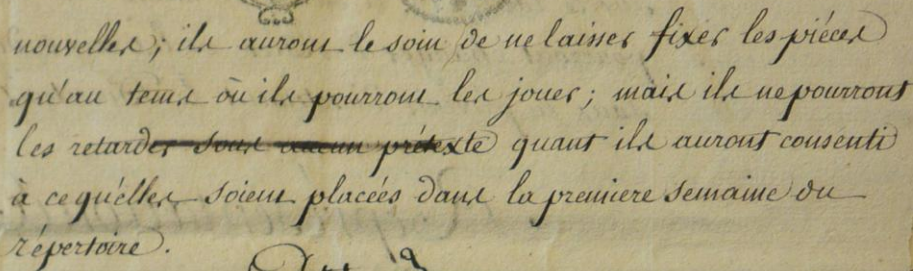 nouvelles; ils auront le soin de ne laisser fixer les piéces
qu'au tems où ils pourront les jouer; mais ils ne pourront
les retarder sous aucun prétexte quant ils auront consenti
à ce qu'elles soient placées dans la premiere semaine du
répertoire.